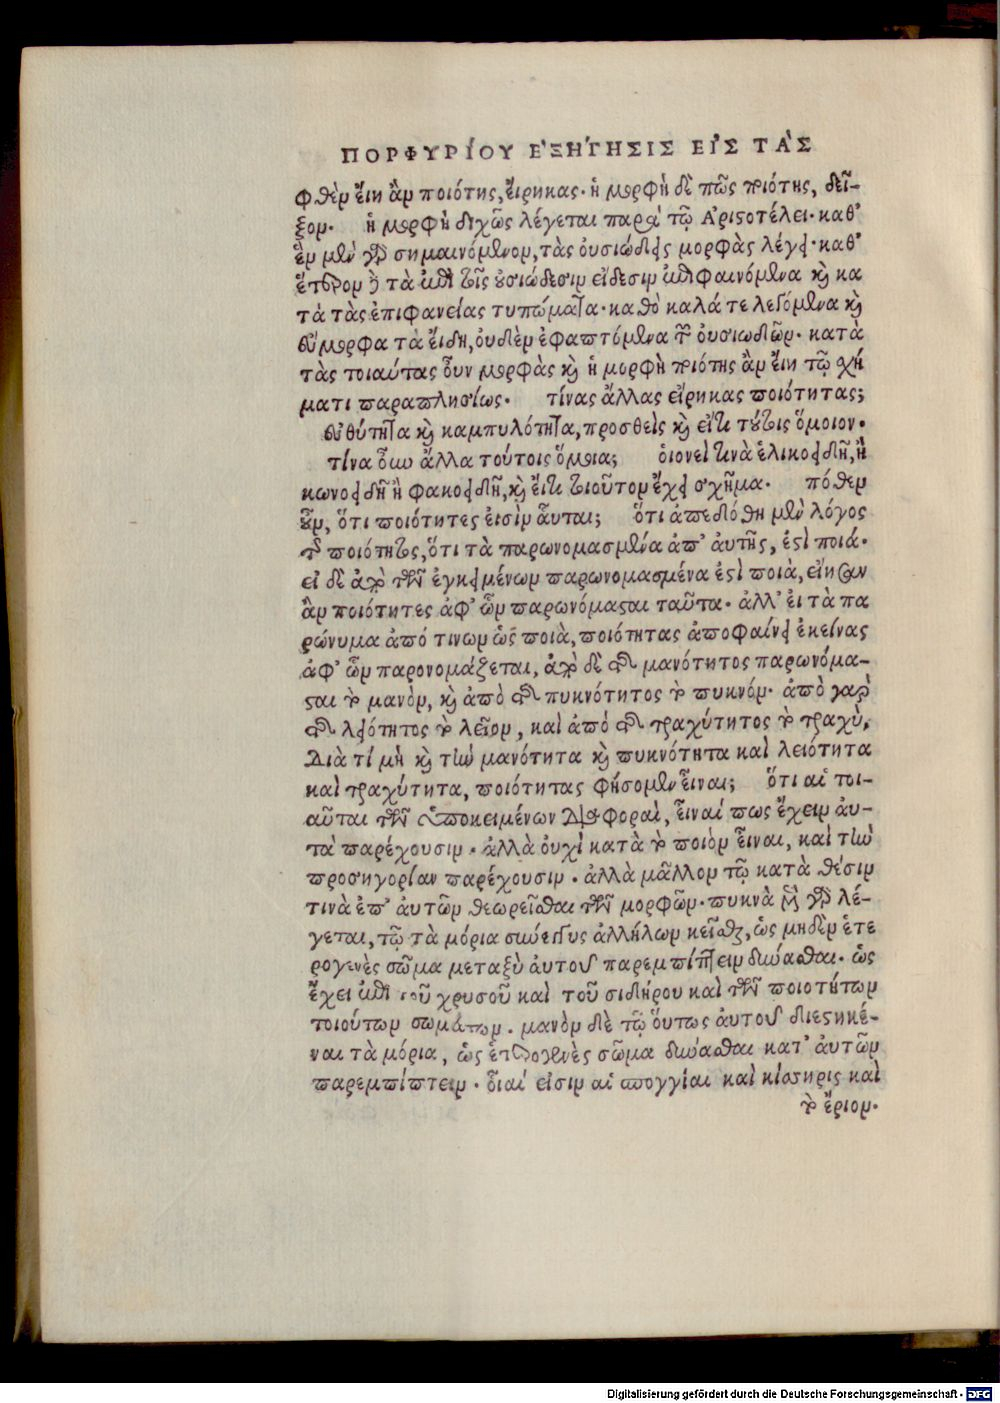 ΠΟΡΦΥΡΙΌΥ ἘΞΗΓΗΣΙΣ ΕἸΣ ΤᾺΣ
φθὲν εἴη ἂν ποιότης, εἴρηκας· ἡ μορφὴ δὲ πῶς ποιότης, δεῖ-
ξον· ἡ μορφὴ διχῶς λέγεται παρὰ τῷ Ἀριστοτέλει· καθ’
ἓν μὲν γὰρ σημαινόμενον, τὰς οὐσιώδεις μορφὰς λέγει· καθ’
ἕτερον δὲ τὰ ἐπὶ τοῖς οὐσιώδεσιν εἴδεσιν ἐπιφαινόμενα καὶ κα
τὰ τὰς ἐπιφανείας τυπώματα· καθὸ καλά τε λεγόμενα καὶ
εὔμορφα τὰ εἴδη, οὐδὲν ἐφαπτόμενα τῶν οὐσιωδῶν· κατὰ
τὰς τοιαύτας οὖν μορφὰς καὶ ἡ μορφὴ ποιότης ἂν εἴη τῷ σχή
ματι παραπλησίως· τίνας ἄλλας εἴρηκας ποιότητας;
εὐθύτητα καὶ καμπυλότητα, προσθεὶς καὶ εἴ τι τούτοις ὅμοιον·
τίνα οὖν ἄλλα τούτοις ὅμοια; οἱονεί τινὰ ἑλικοειδῆ, ἢ
κωνοειδῆ ἢ φακοειδῆ, καὶ εἴ τι τοιοῦτον ἔχει σχῆμα· πόθεν
οὖν, ὅτι ποιότητες εἰσὶν αὗται; ὅτι ἀπεδόθη μὲν λόγος
τῆς ποιότητος, ὅτι τὰ παρωνομασμένα ἀπ’ αὐτῆς, ἐστὶ ποιά·
εἰ δὲ ἀπὸ τῶν ἐγκειμένων παρωνομασμένα ἐστὶ ποιὰ, εἴησαν
ἂν ποιότητες ἀφ’ ὧν παρωνόμασται ταῦτα· ἀλλ’ εἰ τὰ πα
ρώνυμα ἀπό τινων ὡς ποιὰ, ποιότητας ἀποφαίνει ἐκείνας
ἀφ’ ὧν παρονομάζεται, ἀπὸ δὲ τῆς μανότητος παρωνόμα-
σται τὸ μανὸν, καὶ ἀπὸ τῆς πυκνότητος τὸ πυκνόν· ἀπὸ γὰρ
τῆς λειότητος τὸ λεῖον, καὶ ἀπὸ τῆς τραχύτητος τὸ τραχὺ,
Διὰ τί μὴ καὶ τὴν μανότητα καὶ πυκνότητα καὶ λειότητα
καὶ τραχύτητα, ποιότητας φήσομεν εἶναι; ὅτι αἱ τοι-
αῦται τῶν ὑποκειμένων διαφοραὶ, εἶναί πως ἔχειν αὐ-
τὰ παρέχουσιν· ἀλλὰ οὐχὶ κατὰ τὸ ποιὸν εἶναι, καὶ τὴν
προσηγορίαν παρέχουσιν· ἀλλὰ μᾶλλον τῷ κατὰ θέσιν
τινὰ ἐπ’ αὐτῶν θεωρεῖσθαι τῶν μορφῶν· πυκνὰ μὲν γὰρ λέ-
γεται, τῷ τὰ μόρια σύνεγγυς ἀλλήλων κεῖσθαι, ὡς μηδὲν ἑτε
ρογενὲς σῶμα μεταξὺ αὐτοῦ παρεμπίπτειν δύνασθαι· ὡς
ἔχει ἐπὶ τοῦ χρυσοῦ καὶ τοῦ σιδήρου καὶ τῶν ποιοτήτων
τοιούτων σωμάτων· μανὸν δὲ τῷ οὕτως αὐτοῦ διεστηκέ-
ναι τὰ μόρια, ὡς ἑτερογενὲς σῶμα δύνασθαι κατ’ αὐτῶν
παρεμπίπτειν· οἷαί εἰσιν αἱ σπογγίαι καὶ κίσσηρις καὶ
τὸ ἔριον·
Digitalisierung gefördert durch die Deutsche Forschungsgemeinschaft - DFG